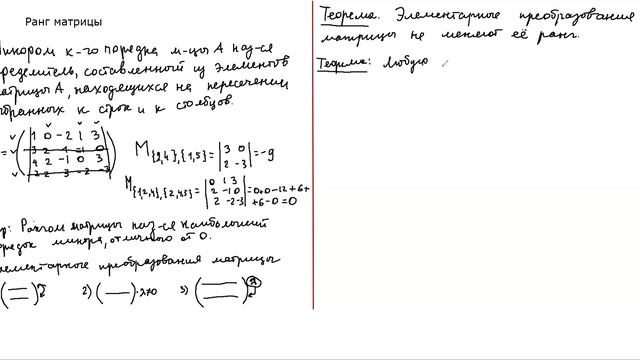 Ранг матрицы
Минором к-го порядка м-цы А наз-ся
определитель, составленный из элементов
матрицы А, находящихся на пересечении
выбранных к строк и к столбцов.
1 0 -2 1 3
4 2 -1 0 3
M{2,4},{1,5} = |3 0
2 -3| = -9
M{1,2,4},{2,4,5} = |0 1 3
2 -1 0
2 -2 -3| = 0+0-12+6+
+6-0=0
Рангом матрицы наз-ся наибольший
порядок минора, отличного от 0.
Элементарные преобразования матрицы
2) ( — )·λ≠0 3)
Теорема. Элементарные преобразования
матрицы не меняют её ранг.
Теорема: Любую